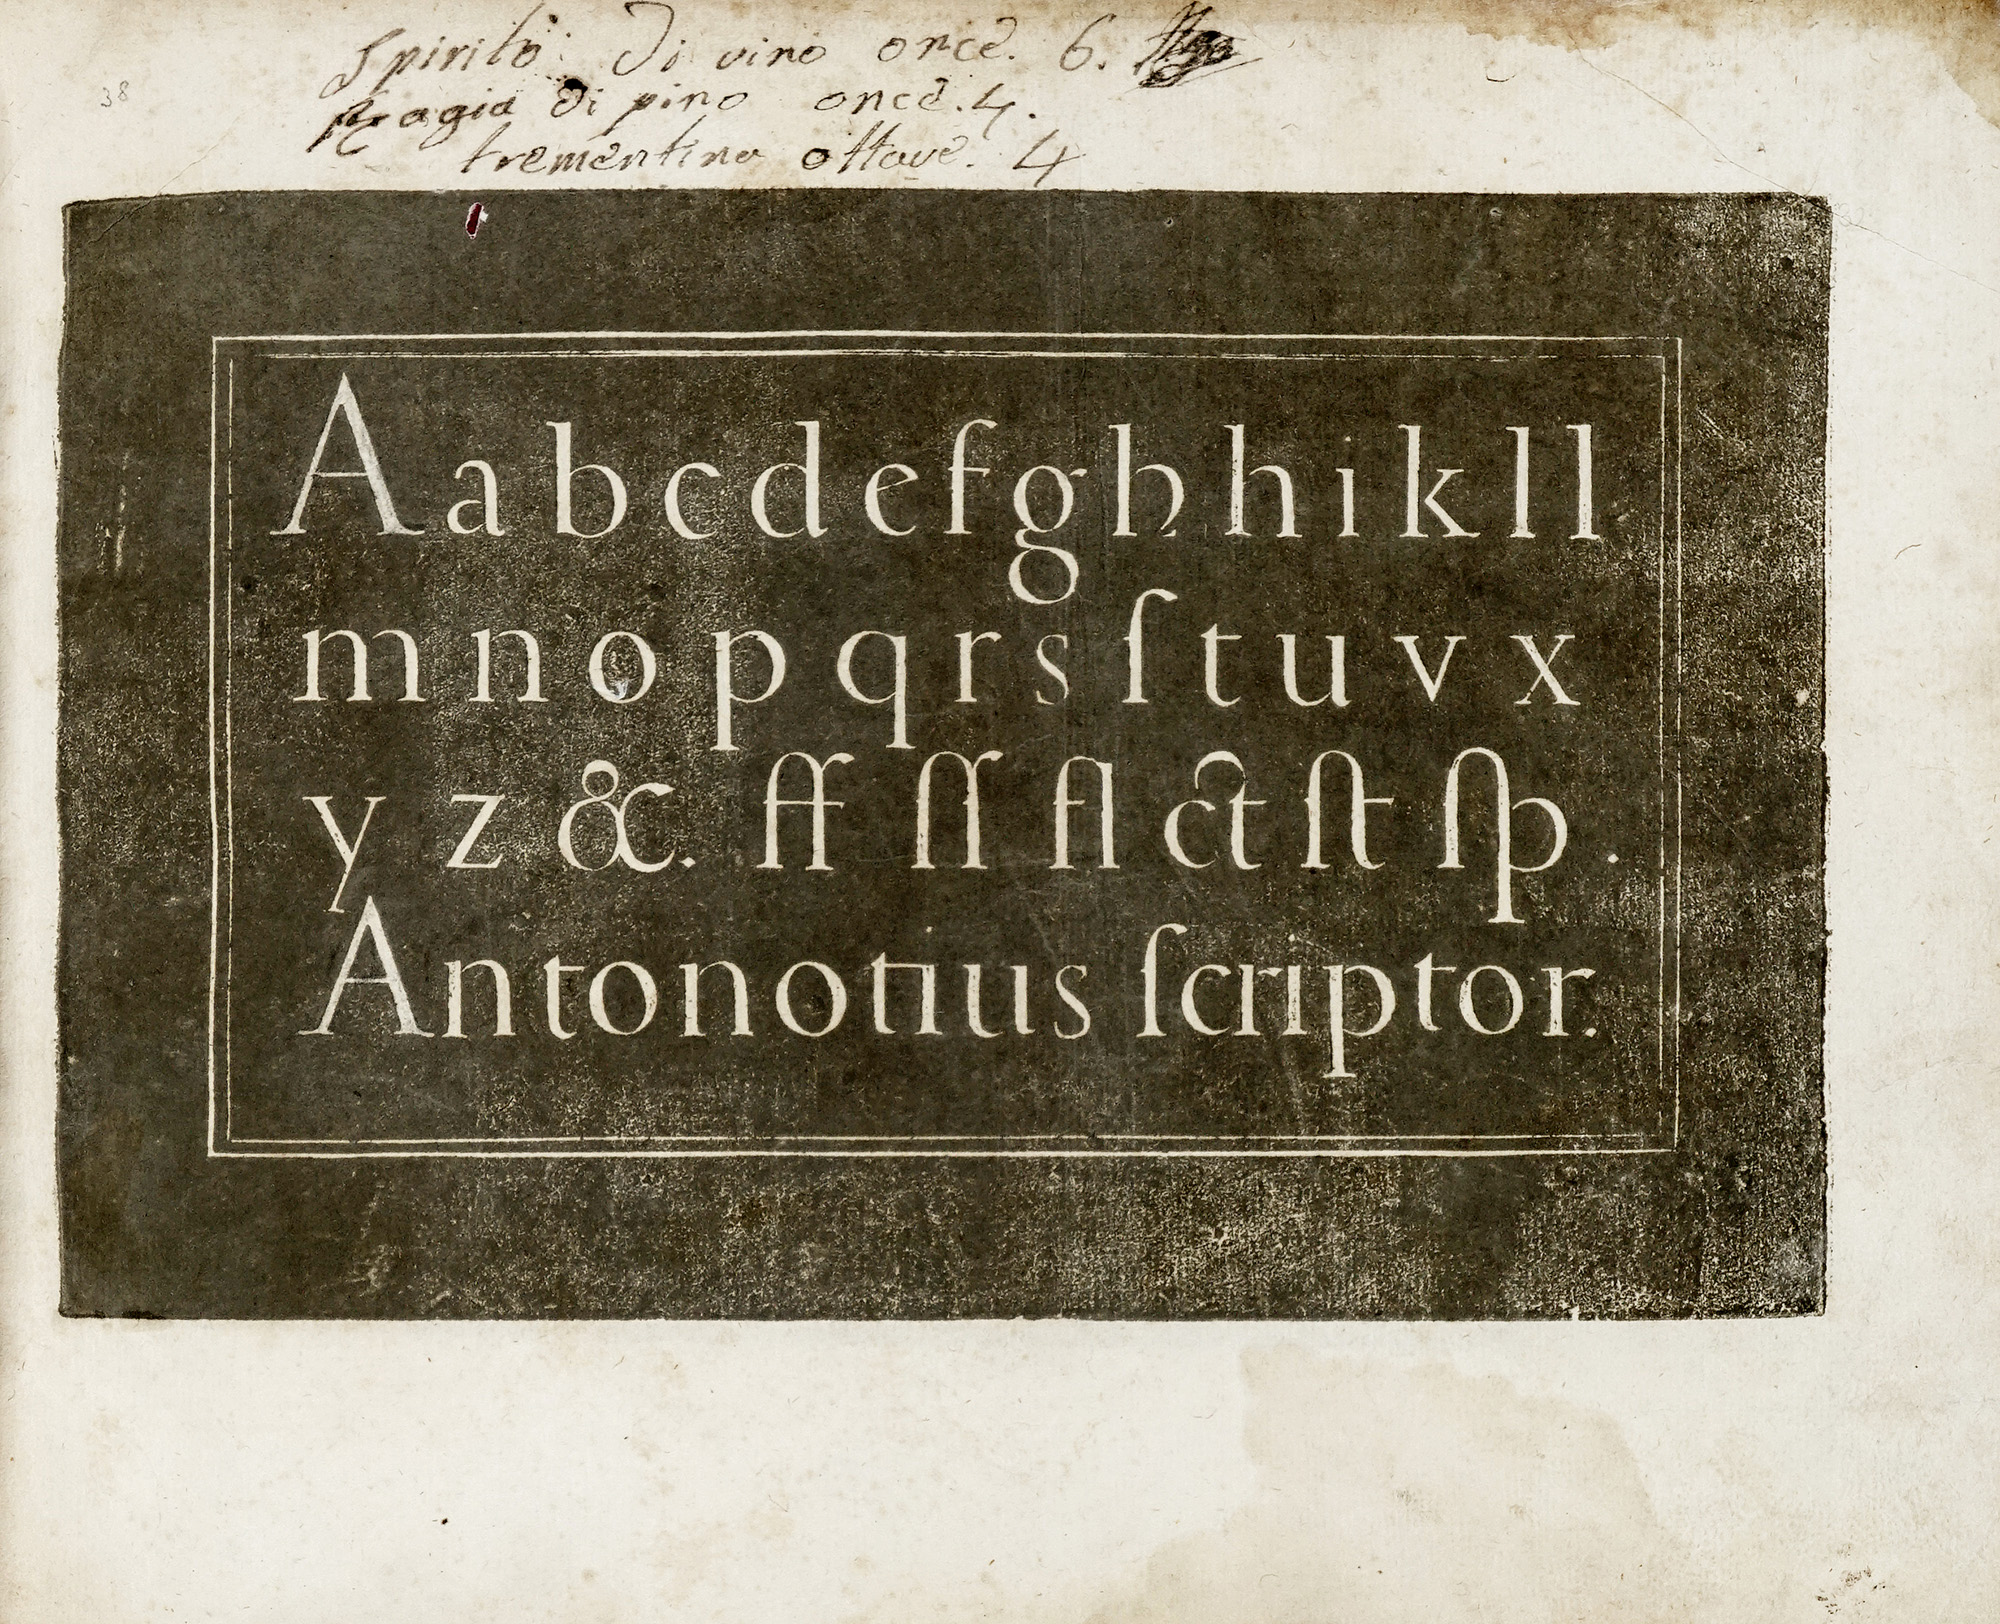 Spirito di vino once. 6.
38
ragia di pino once. 4.
trementina ottave. 4
A a b c d e f g h h i k l l
m n o p q r s ſ t u v x
y z &. ff ſſ fl ct ſt ſp .
Antonotius ſcriptor.